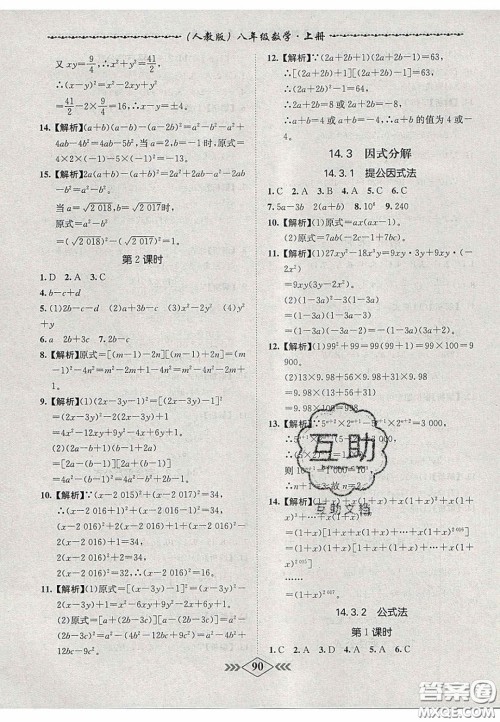 (人教版)八年级数学·上册
又xy=9/4,
∴x²+y²=41/2,∴x²-2xy+y²=
41/2-2×9/4=16,∴x-y=±4.
14.【解析】(a+b)(a-b)-(a-2b)²=a²-b²-a²+
4ab-4b²=4ab-5b².当a=2,b=-1时,原式=
4×2×(-1)-5×1=-13.
15.【解析】2a(a+b)-(a+b)²=2a²+2ab-a²-
2ab-b²=a²-b².
当a=√2 018,b=√2 017时,
原式=(√2 018)²-(√2 017)²=2 018-
2 017=1.
第2课时
1.D 2.A 3.C
4.b-c+d
5.(1)2b-2c (2)a+d (3)x²-y² (4)-y³
6.a 2b+3c 7.2b-c
8.【解析】原式=[(m-1)-2n][(m-1)+2n]=(m-
1)²-4n²=m²-2m+1-4n².
9.【解析】(1)(2x-3y-1)²=[(2x-3y)-1]²=
(2x-3y)²-2(2x-3y)+1=4x²-12xy+9y²-
4x+6y+1.
(2)(2a-b-1)(1-b+2a)=
[(2a-b)-1][(2a-b)+1]=
(2a-b)²-1=4a²-4ab+b²-1.
10.【解析】∵(x-2 015)²+(x-2 017)²=34,
∴(x-2 016+1)²+(x-2 016-1)²=34,
(x-2 016)²+2(x-2 016)+1+(x-2 016)²-
2(x-2 016)+1=34,
2(x-2 016)²+2=34,
2(x-2 016)²=32,
∴(x-2 016)²=16.
11.【解析】(1)原式=[(x-3y)(x+3y)]²=(x²-
9y²)²=x⁴-18x²y²+81y⁴.
(2)原式=[a+(2b-3c)][a-(2b-3c)]=a²-
(2b-3c)²=a²-(4b²-12bc+9c²)=a²-4b²+
12bc-9c².
12.【解析】∵(2a+2b+1)(2a+2b-1)=63,
∴[(2a+2b)+1][(2a+2b)-1]=63,
∴(2a+2b)²-1=63,∴(2a+2b)²=64,
∴2a+2b=8或2a+2b=-8,
∴a+b=4或a+b=-4,∴a+b的值为4或-
4.
14.3 因式分解
14.3.1 提公因式法
1.C 2.A 3.B 4.A 5.B 6.C
7.5a-3b 2(a+b) 8.10⁶ 9.240
10.【解析】(1)原式=ax(ax-b).
(2)原式=7ab(-2c-1+7bc).
11.【解析】(1)27x²y-18x³y=9xy·3x+9xy·(-
2x²)
=9xy(3x-2x²)
=9x²y(3-2x).
(2)(1-3a)²-2(1-3a)
=(1-3a)(1-3a-2)
=(1-3a)(-3a-1).
12.【解析】(1)99²+99=99×(99+1)=99×100=9
900.
(2)9.98×13+9.98×56+9.98×31
=9.98×(13+56+31)
=9.98×100=998.
13.【解析】
∴n+1=3,故n=2.
【解析】(1+x)+x(1+x)+x(1+x)²+x(1+
=(1+x)[1+x+x(1+x)+
=(1+x)²[1+x+
……
=(1+x)
14.3.2 公式法
第1课时
1.C 2.A 3.A 4.D 5.A 6.C
90
互助
互助文档
答案圈